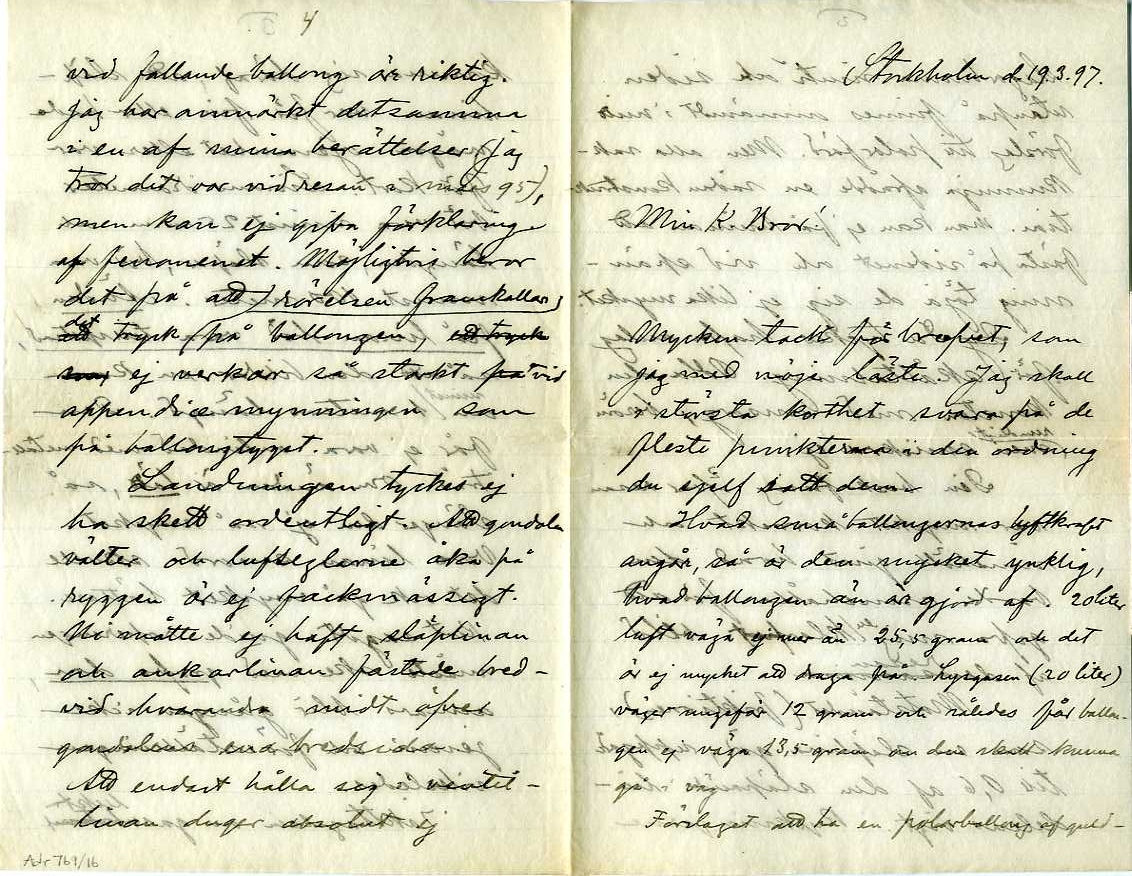 4
vid fallande ballong är riktig.
Jag har anmärkt detsamma
i en af mina berättelser (jag
tror det var vid resan i 95),
men kan ej gifva förklaring
af fenomenet. Möjligtvis beror
det på att rörelsen framkallar
det tryck på ballongen, ett tryck
som ej verkar så starkt på vid
appendixmynningen som
på ballongtyget.
Landningen tyckes ej
ha skett ordentligt. Att gondolen
välter och luftseglarne åka på
ryggen är ej fackmässigt.
Ni måtte ej haft släplinan
och ankarlinan fästade bred-
vid hvarandra midt öfver
gondolens ena bredsida.
Att endast hålla sig i ventil-
linan duger absolut ej
Adr 769/16
Stockholm d. 19.3.97.
Min K. Bror!
Mycken tack för brefvet, som
jag med nöje läste. Jag skall
i största korthet svara på de
fleste punkterna i den ordning
du sjelf satt dem.
Hvad småballongernas lyftkraft
angår, så är den mycket ynklig,
hvad ballongen än är gjord af. 20 liter
luft väga ej mer än 25,5 gram och det
är ej mycket att draga på. Lysgasen (20 liter)
väger ungefär 12 gram och således får ballon-
gen ej väga 13,5 gram om den skall kunna
gå i väg.
Förslaget att ha en polarballong af guld-